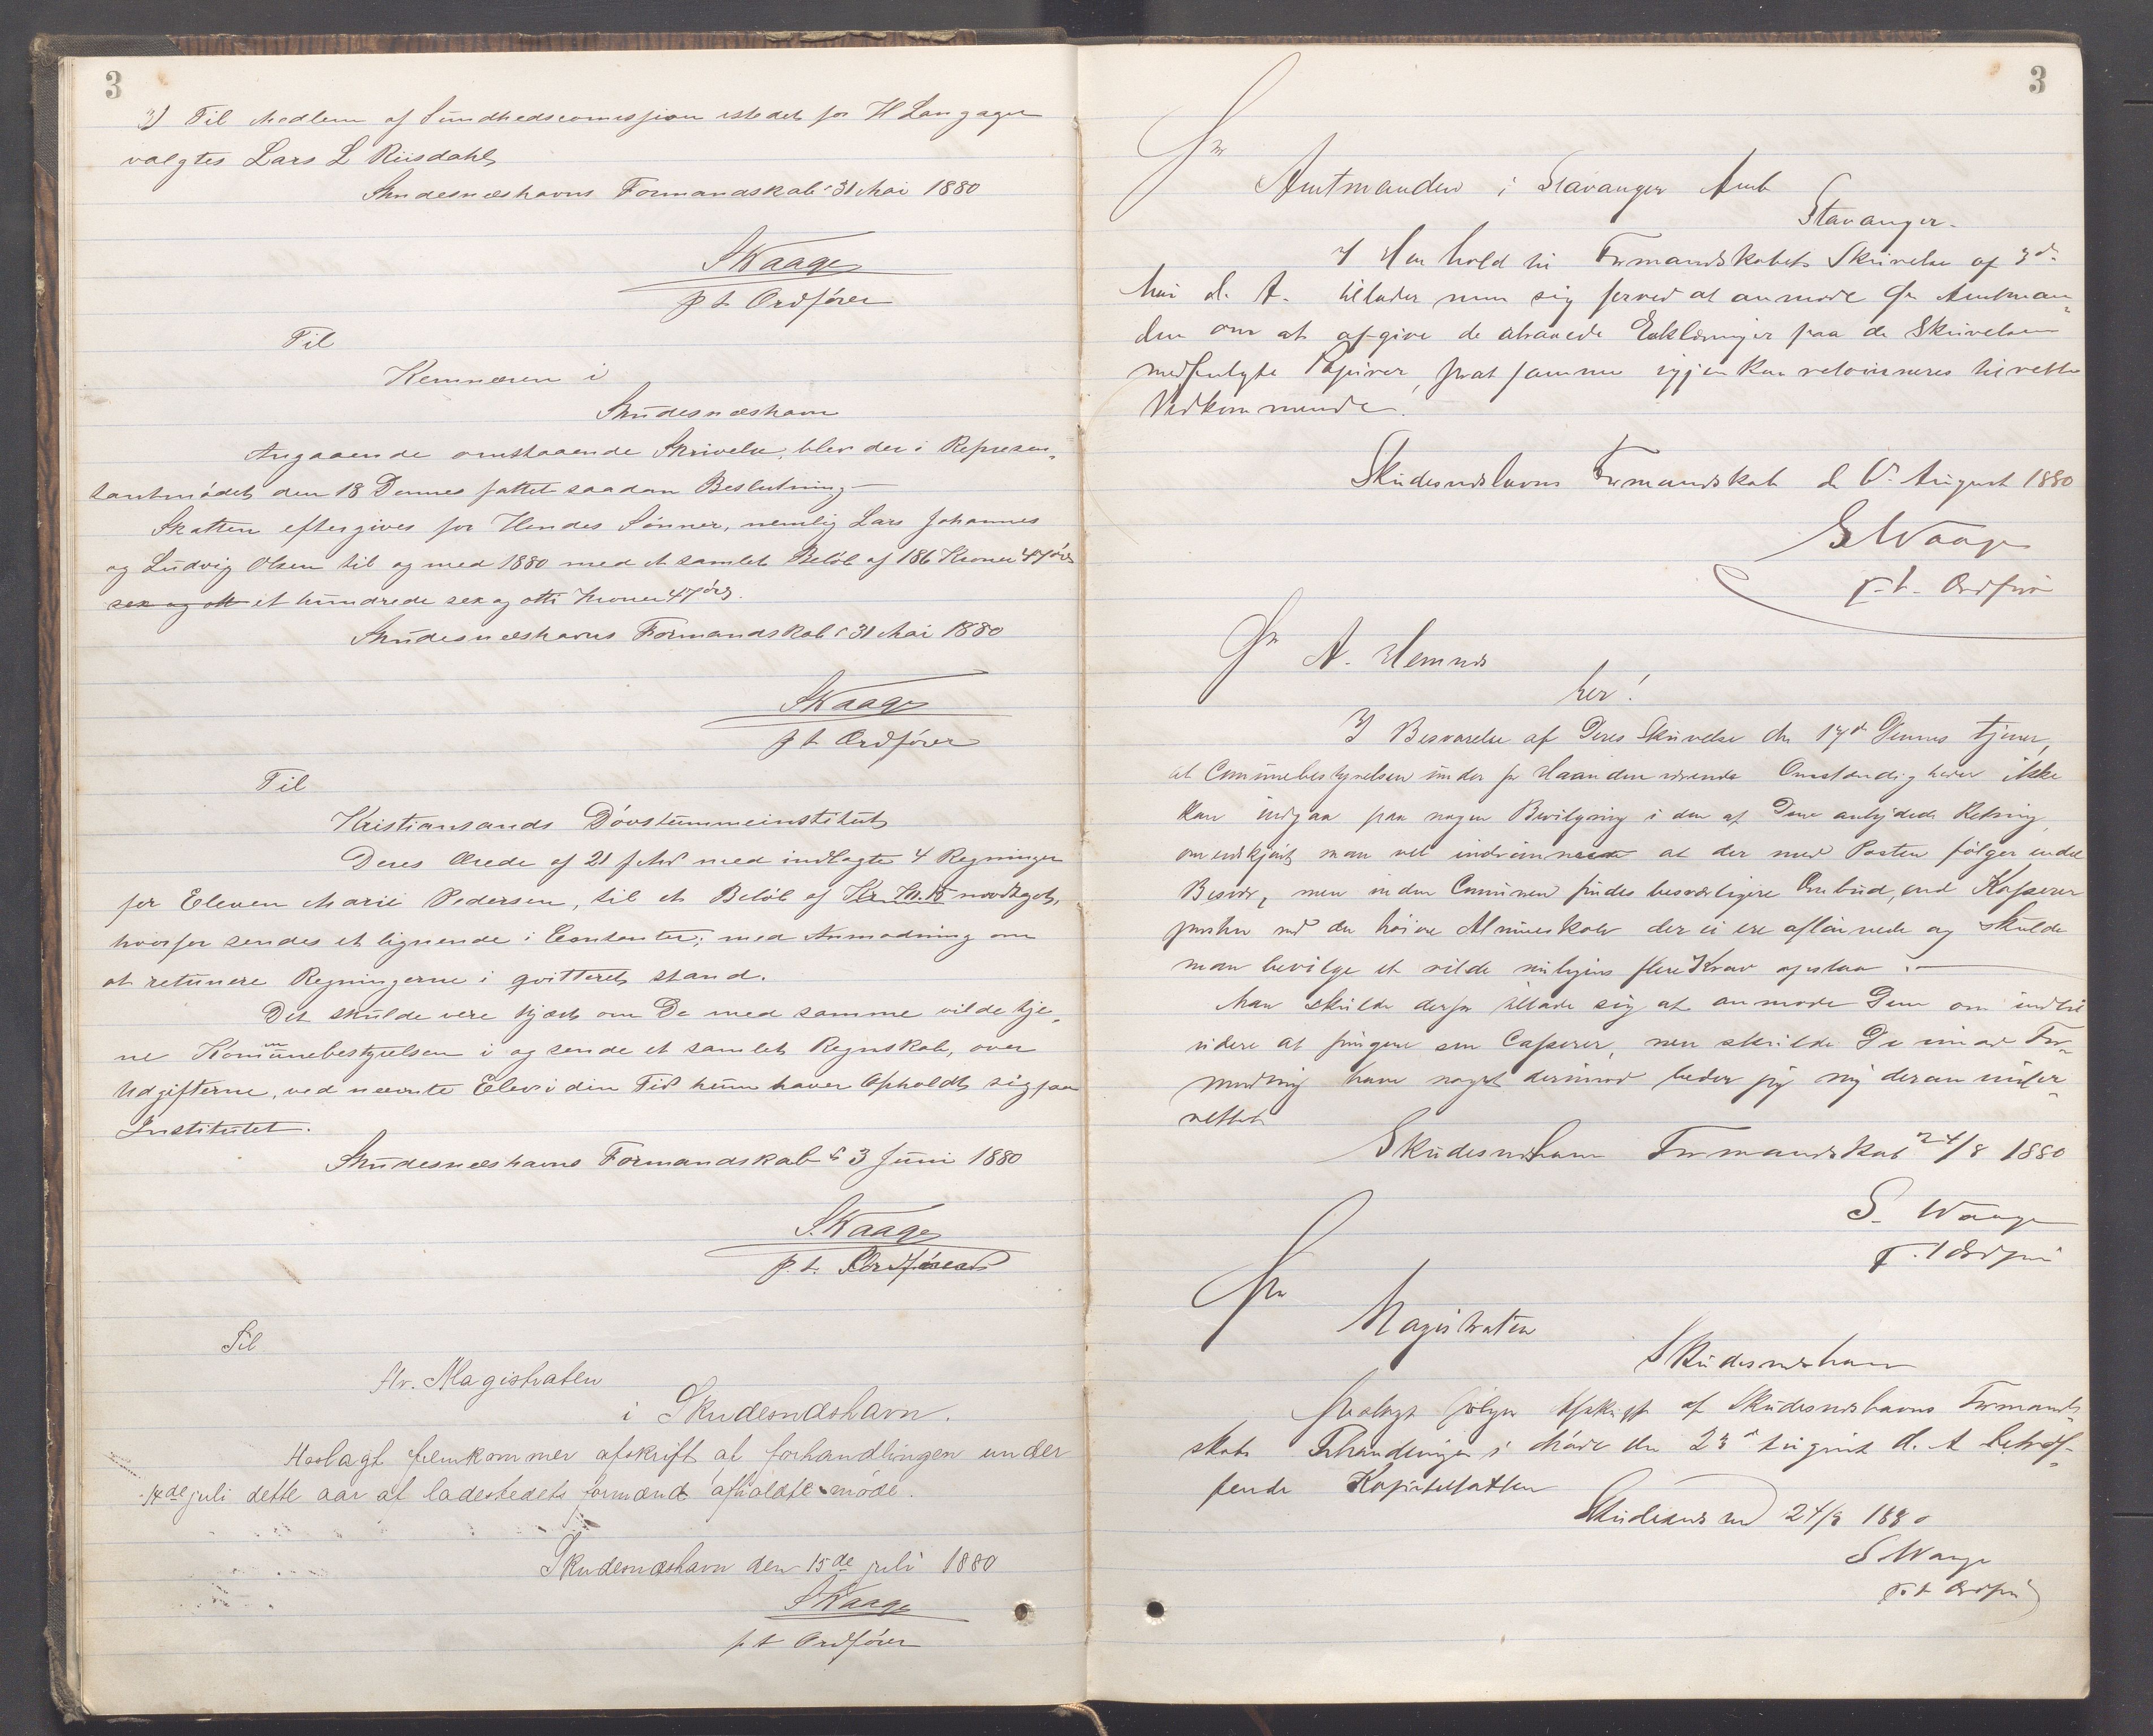 3
2) Til Medlem af Sundhedscomissjion istedet for H Langager
valgtes Lars L Riisdahl
Skudesnæshavns Formandskab d 31 Mai 1880
S Waage
p t Ordfører
Til
Kemneren i
Skudesnæshavn
Angaaende omstaaende Skrivelse, blev der i Represen„
tantmødet den 18 Dennes fattet saadan Beslutning –
Skatten eftergives for Hendes Sønner, nemlig Lars Johannes
og Ludvig Olsen til og med 1880 med et samlet Beløb af 186 Kroner 47 øre
sex og ott et hundrede sex og otti Kroner 47 øre.
Skudesnæshavns Formandskab d 31 Mai 1880
S Waage
p t Ordfører
Til
Kristiansands Døvstummeinstitut
Deres Ærede af 21 med indlagte 4 Regninger
for Eleven Marie Pedersen, til et Beløb af Kr. modtaget,
hvorfor sendes et lignende i Contanter; med Anmodning om
at retunere Regningerne i qvitteret stand.
Det skulde vere kjært om De med samme vilde tje„
ne Komunebestyrelsen i og sende et samlet Regnskab, over
Udgifterne, ved nævnte Elev i den Tid hun haver Opholdt sig paa
Institutet.
Skudesnæshavns Formandskab d 3 Juni 1880
S. Waage
p. t. Ordfører
Til
Hr. Magistraten
i Skudesnæshavn.
Hoslagt fremkommer afskrift af forhandlingen under
14de juli dette aar af ladestedets formænd afholdte møde.
Skudesnæshavn den 15de juli 1880
S Waage
p t Ordfører
3
Hr
Amtmanden i Stavanger Amt
Stavanger.
I Henhold til Formandskabets Skrivelse af 3d
Mai d. A. tillader man sig herved at anmode Hr Amtman„
den om at afgive de attraaede Erklæringer paa de Skrivelsen
medfulgte Papirer, forat samme igjen kan retourneres til rette
Vedkommende.
Skudesnæshavns Formandskab d August 1880
S Waage
p. t. Ordfører
Hr A.
her!
I Besvarelse af Deres Skrivelse den 17d Dennes tjener,
at Comunebestyrelsen under for Haanden værende Omstændigheder ikke
kan indgaa paa nogen Bevilgning i den af Dem antydede Retning
omendskjønt man vel indrømmer at der med Posten følger endel
Besvær, men inden Comunen findes besværligere Ombud, end Kasserer
posten ved den høiere Almueskole der ei ere aflønnede og skulde
man bevilge et vilde muligens flere Krav opstaa. —
Man skulde derfor tillade sig at anmode Dem om indtil
videre at fungere som Casserer, men skulde De imod For„
modning have noget derimod beder jeg mig derom under„
rettet
Skudesnæshavn Formandskab 24/8 1880
S. Waage
p. t Ordfører
Hr
Magistraten
Skudesnæshavn
Hoslagt følger Afskrift af Skudesnæshavns Formand„
skabs Forhandlinger i Møde den 23d August d. A betræf„
fende Kapitelsatten
Skudesnæs 24/8 1880
S Waage
p. t Ordfører